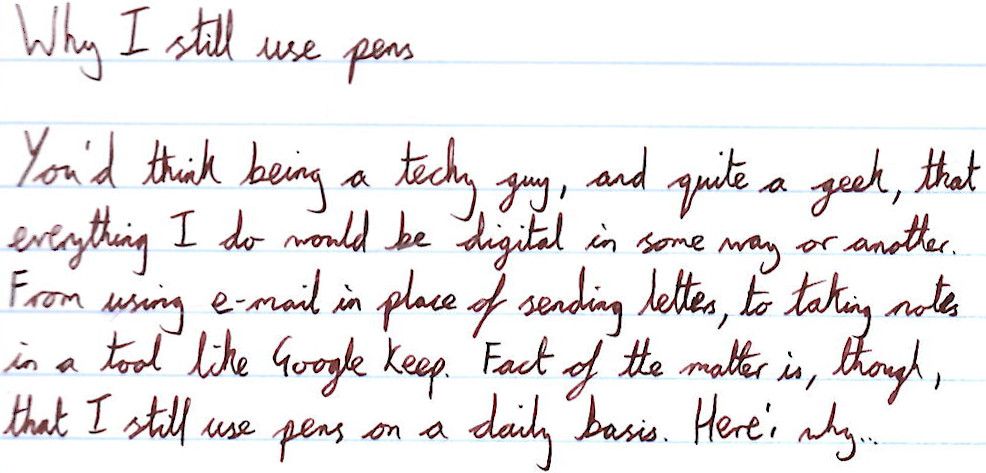 Why I still use pens
You'd think being a techy guy, and quite a geek, that
everything I do would be digital in some way or another.
From using e-mail in place of sending letters, to taking notes
in a tool like Google Keep. Fact of the matter is, though,
that I still use pens on a daily basis. Here's why...